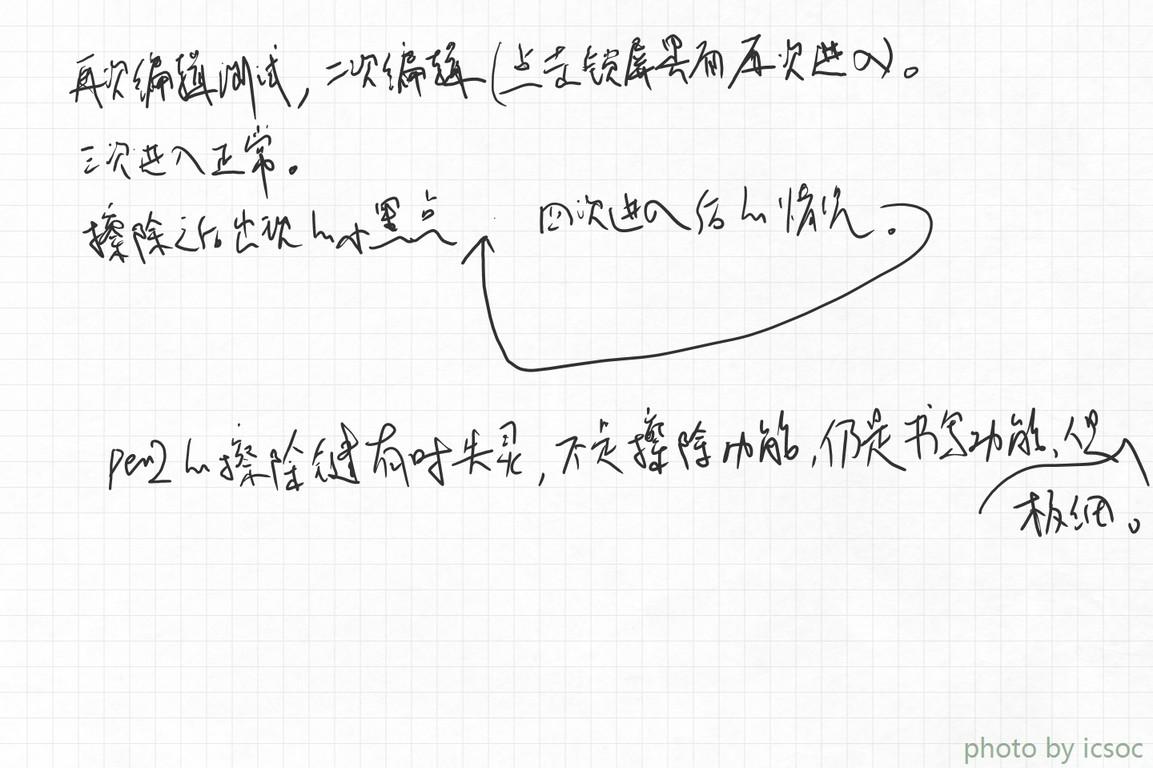 再次编辑测试，二次编辑(点击锁屏界面再次进入)。
三次进入正常。
擦除之后出现的小黑点 四次进入后的情况。
pen2的擦除键有时失灵，不是擦除功能，仍是书写功能，但
极细。
photo by icsoc